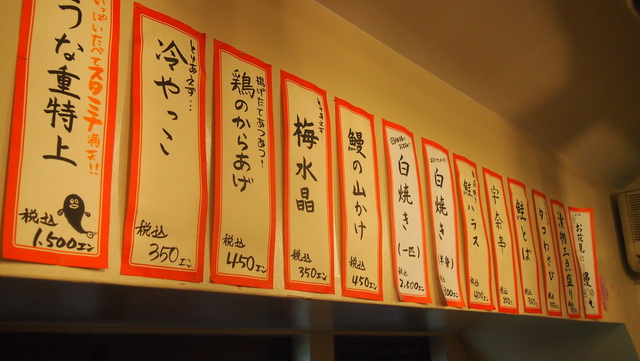 いっぱいたべてスタミナ満天!!
うな重特上
税込
1.500エン
とりあえず…
冷やっこ
税込
350エン
揚げたてあつあつ!
鶏のからあげ
税込
450エン
とりあえず
梅水晶
税込
350エン
鰻の山かけ
税込
450エン
白焼き
(一匹)
税込
2.500エン
白焼き
(半身)
税込
鮭ハラス
税込
400エン
宇奈辛
税込
鮭とば
税込
350エン
タコわさび
税込
漬物三点盛り